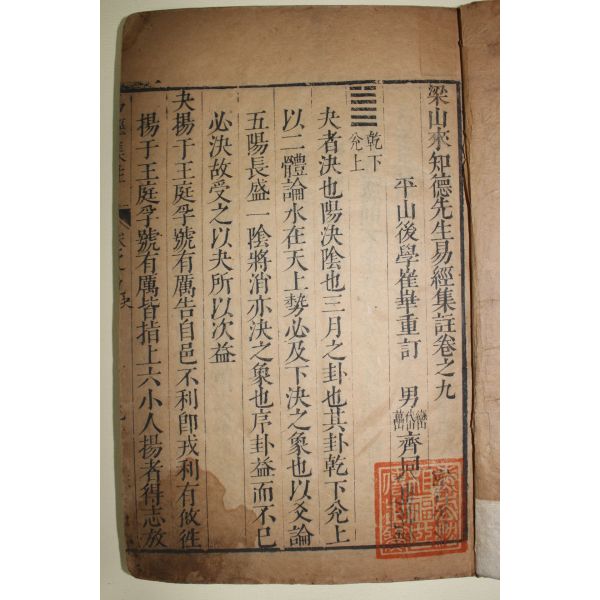 梁山來知德先生易經集註卷之九
平山後學崔華重訂 男
齊
乾下
兊上
夬者決也陽決陰也三月之卦也其卦乾下兊上
以二體論水在天上勢必及下決之象也以爻論
五陽長盛一陰將消亦決之象也序卦益而不已
必決故受之以夬所以次益
夬揚于王庭孚號有厲告自邑不利卽戎利有攸徃
揚于王庭孚號有厲皆指上六小人揚者得志放
易經集註